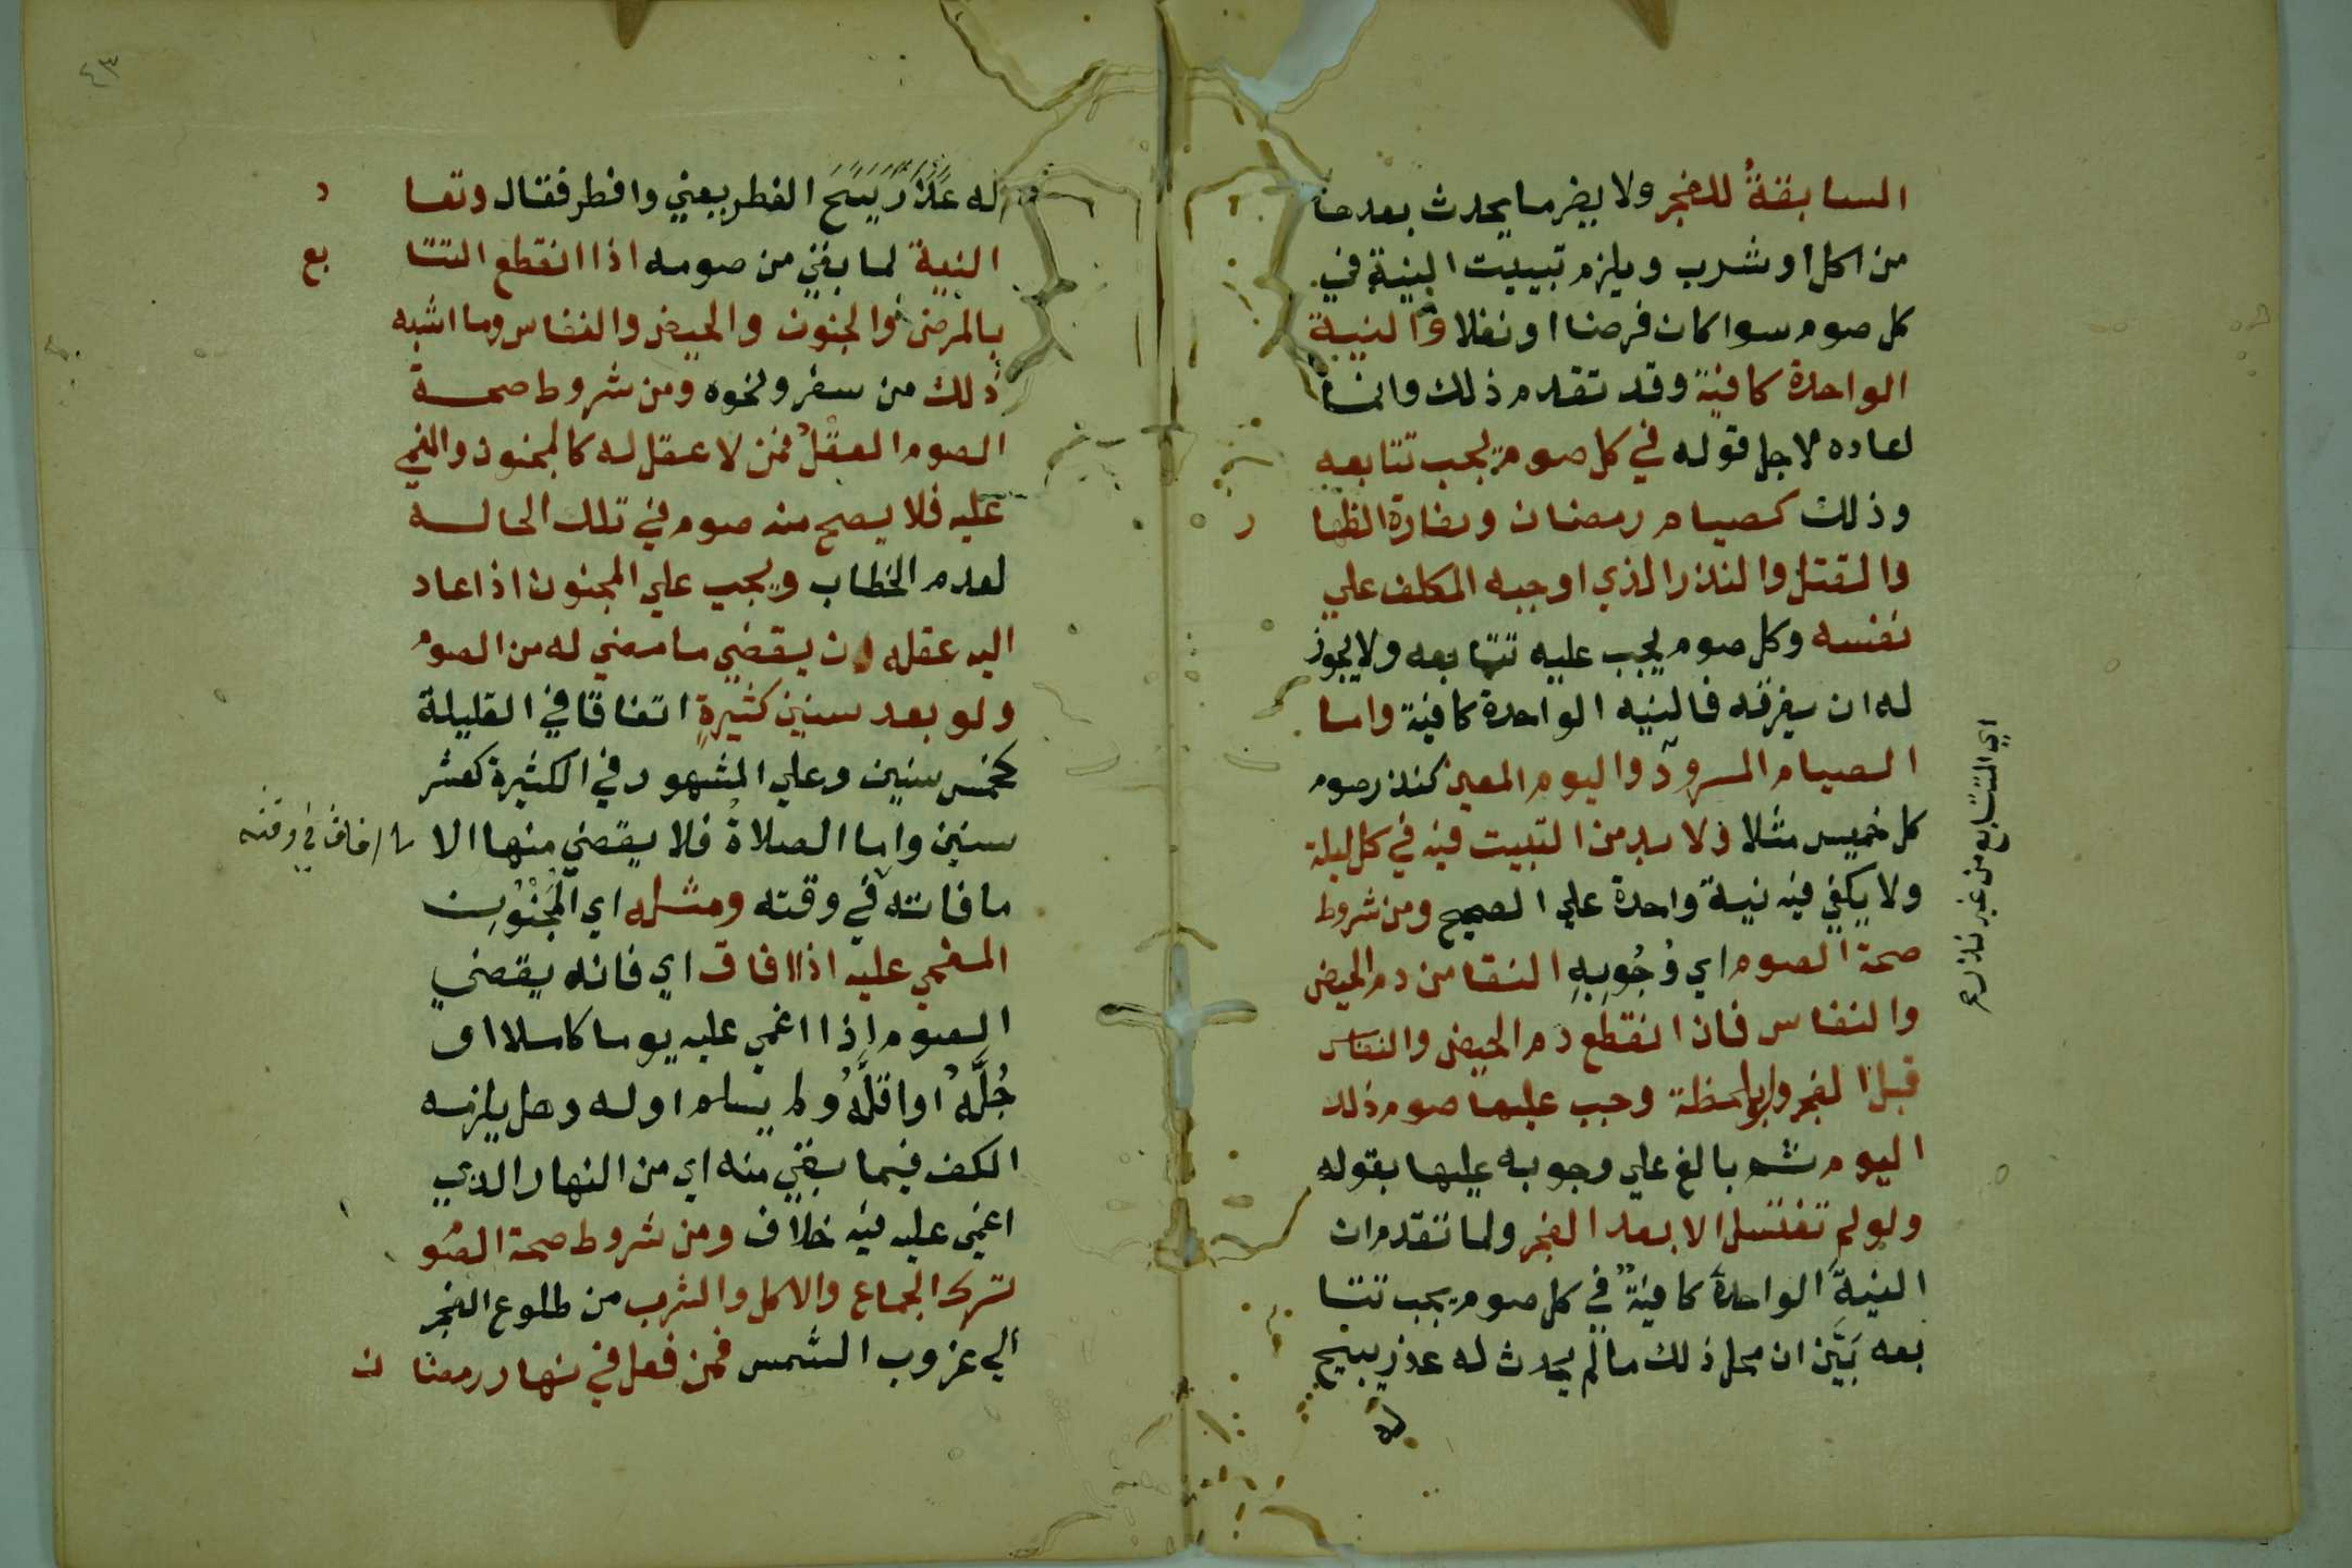 السابقةُ للفجر ولا يضر ما يحدث بعدها
من اكل او شرب ويلزم تبييت النية في
كل صوم سوا كان فرضا او نفلا والنية
الواحدة كافية وقد تقدم ذلك وانما
اعاده لاجل قوله في كل صوم يجب تتابعه
وذلك كصيام رمضان وكفارة الظها ر
والقتل والنذر الذي اوجبه المكلف علي
نفسه وكل صوم يجب عليه تتابعه ولا يجوز
له ان يفرقه فالنيه الواحدة كافية واما
الصيام المسرود واليوم المعين كنذر صوم
كل خميس مثلا فلا بد من التبييت فيه في كل ليلة
ولا يكفي فيه نية واحدة علي الصحيح ومن شروط
صحة الصوم اي وُجُوبِهِ النقا من دم الحيض
والنفاس فان انقطع دم الحيض والنفاس
قبل الفجر ولو بلحظة وجب عليها صوم ذلك
اليوم ثم بالغ علي وجوبه عليها بقوله
ولو لم تغتسل الا بعد الفجر ولما تقدم ان
النيةَ الواحدةَ كافيةٌ في كل صوم يجب تتا
بعه بَيَّن ان محل ذلك ما لم يحدث له عذر يبيح
له
اي المتتابع من غير نذر
٤٣
له عذر يبيح الفطر يعني وافطر فقال وتعا د
النية لما بقي من صومه اذا انقطع التتا بع
بالمرض والجنون والحيض والنفاس وما اشبه
ذلك من سفر ونحوه ومن شروط صحة
الصوم العقلُ فمن لا عقل له كالمجنون والمغمي
عليه فلا يصح منه صوم في تلك الحاله
لعدم الخطاب ويجب علي المجنون اذا عاد
اليه عقله ان يقضي ما مضي له من الصوم
ولو بعد سنين كثيرةٍ اتفاقا في القليلة
كخمس سنين وعلي المشهور في الكثيرة كعشر
سنين واما الصلاةُ فلا يقضي منها الا
ما افاق في وقته
ما فاتته في وقته ومثله اي المَجْنُونِ
المغمي عليه اذا افاق اي فانه يقضي
الصوم اذا اغمي عليه يوما كاملا او
جُلَّهُ او اقلَّهُ ولم يسلم اوله وهل يلزمه
الكف فيما بقي منه اي من النهار الذي
اغمي عليه فيه خلاف ومن شروط صحة الصو
ترك الجماع والاكل والشرب من طلوع الفجر
الي غروب الشمس فمن فعل في نهار رمضا ن